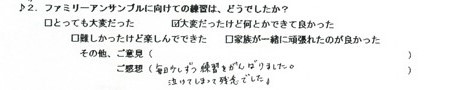 ♪2. ファミリーアンサンブルに向けての練習は、どうでしたか？
□とっても大変だった ☑大変だったけど何とかできて良かった
□難しかったけど楽しんでできた □家族が一緒に頑張れたのが良かった
その他、ご意見（ ）
ご感想（毎日少しずつ練習をがんばりました。
泣けてしまって残念でした。）